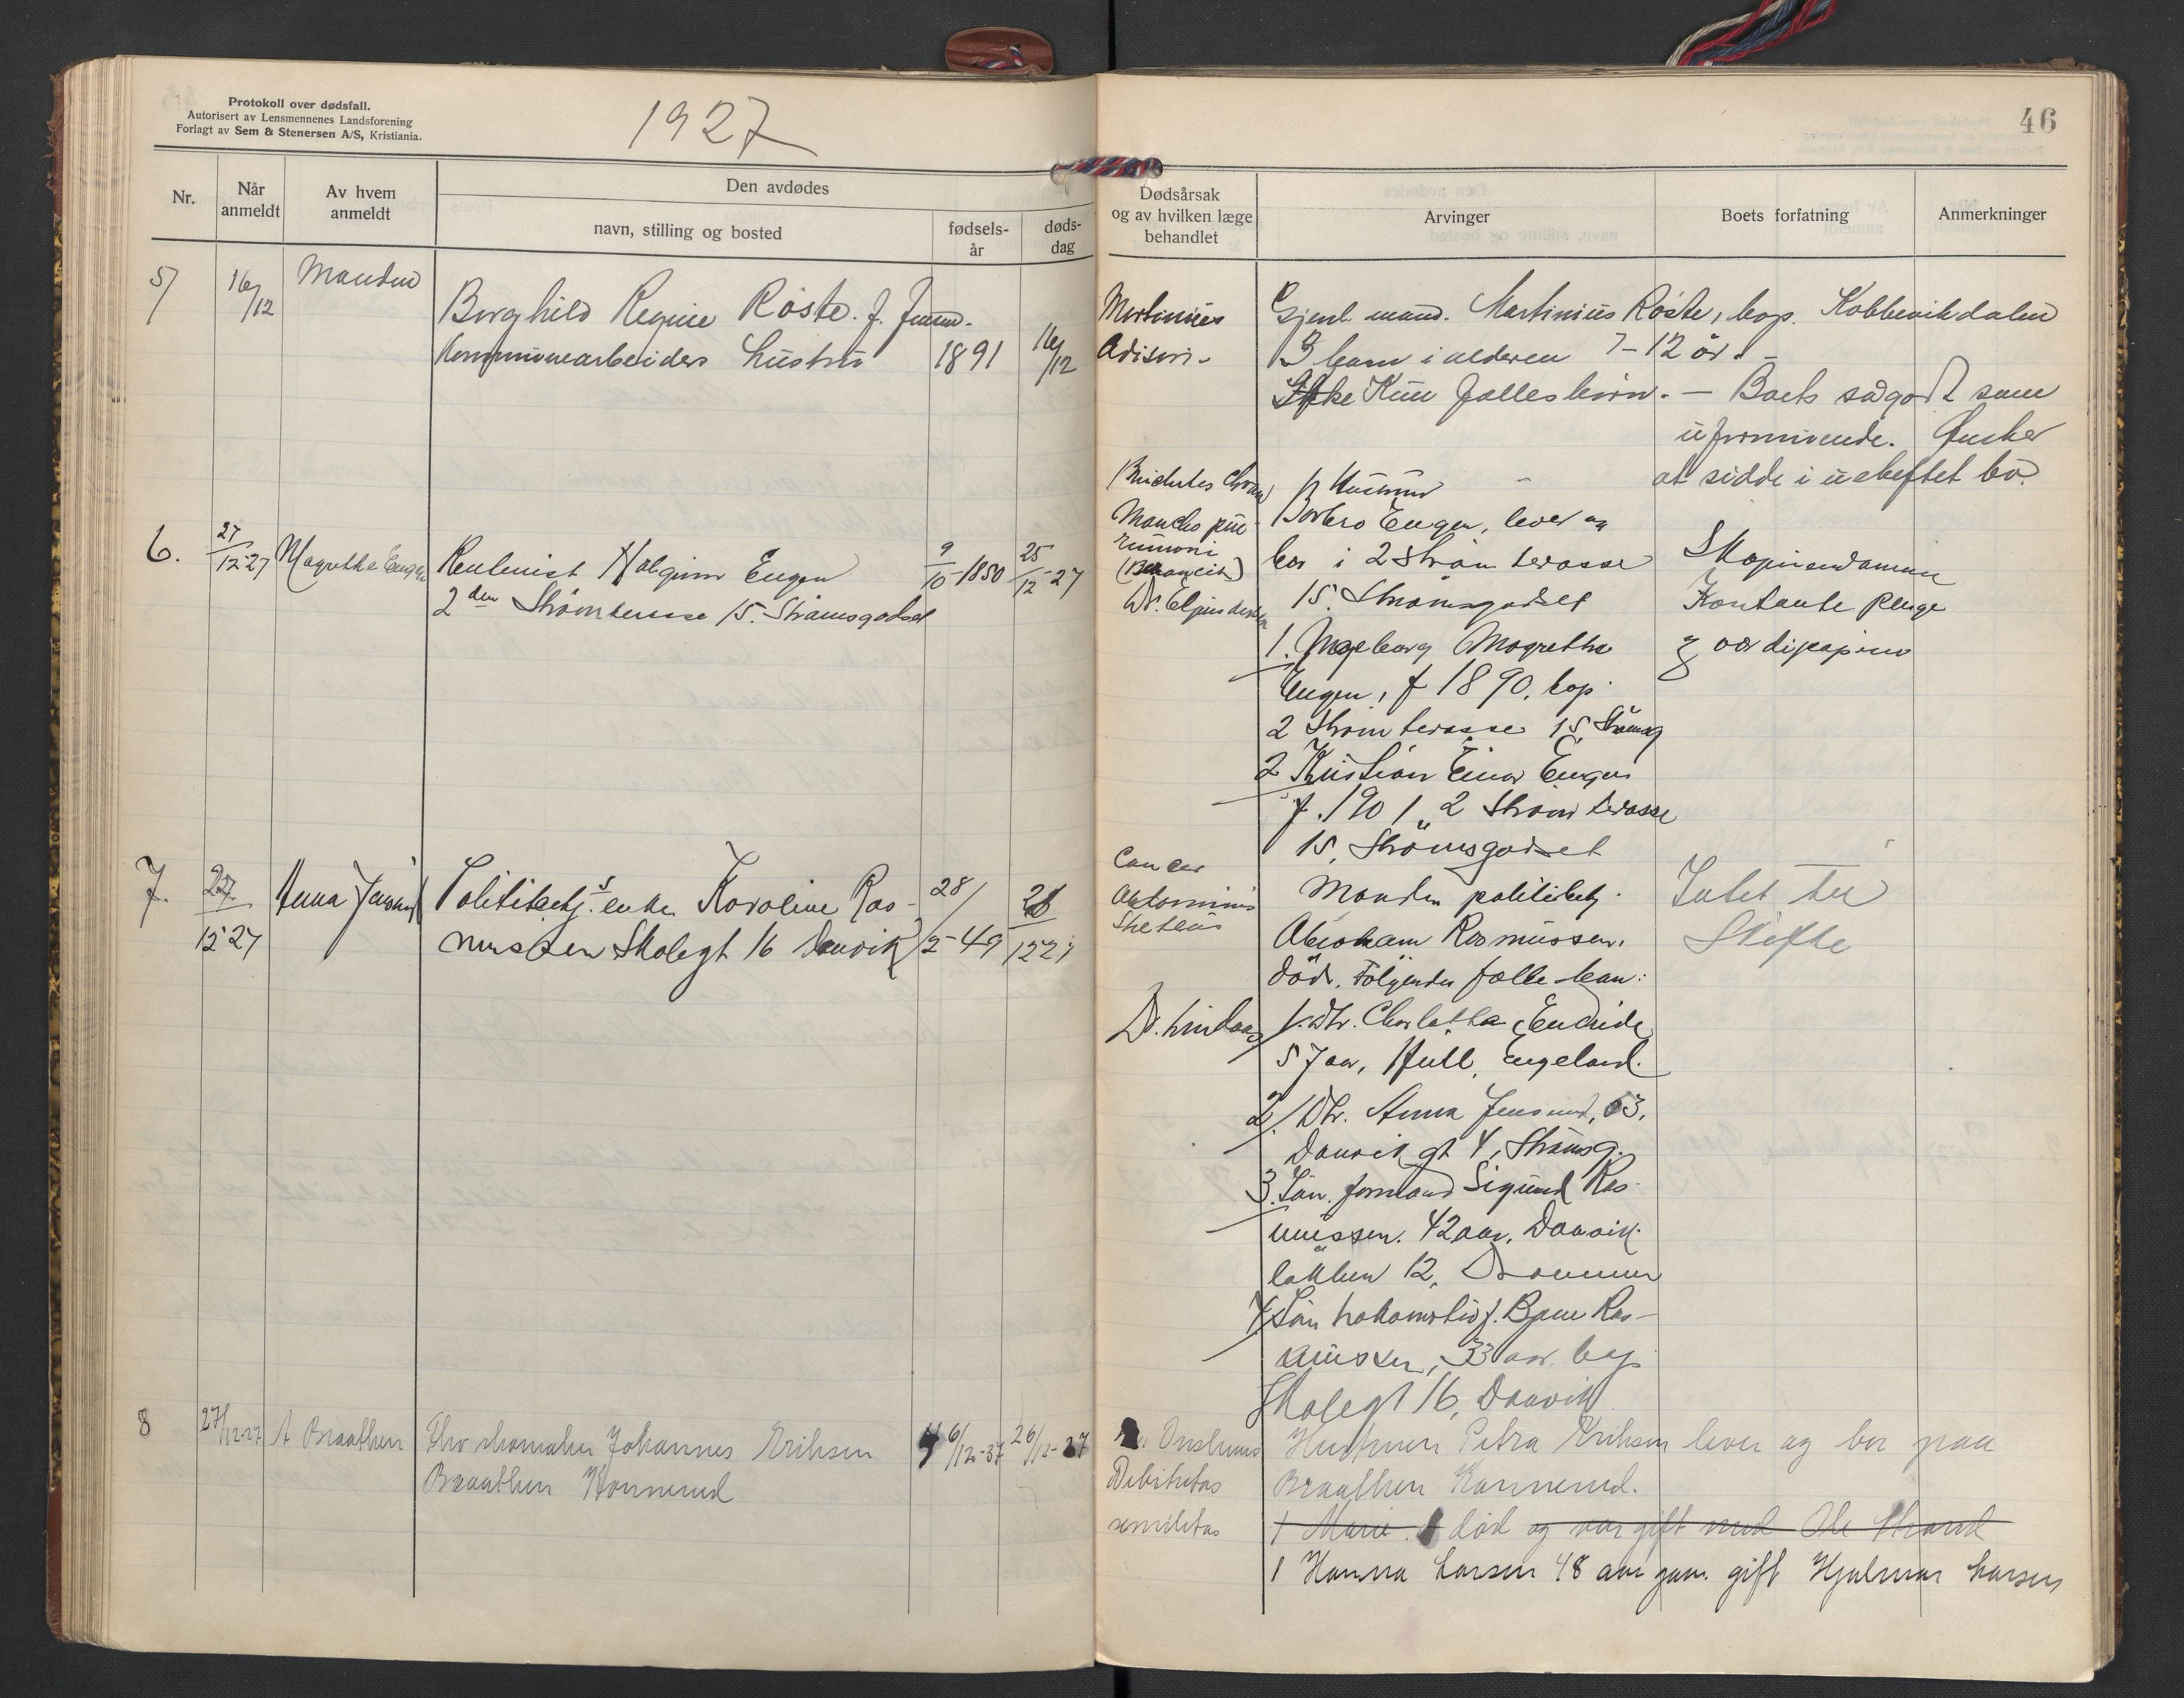 Protokoll over dødsfall.
Autorisert av Lensmennenes Landsforening
Forlagt av Sem & Stenersen A/S, Kristiania.
1927
46
Nr.
Når anmeldt
Av hvem anmeldt
Den avdødes
navn, stilling og bosted
fødsels-år
døds-dag
Dødsårsak og av hvilken læge behandlet
Arvinger
Boets forfatning
Anmerkninger
5/
16/12
Manden
Borghild Regine Røste. f.
Kommunearbeiders hustru
1891
16/12
Gjenl. mand. Martinius Røste, bop. Kobbervikdalen
3 barn i alderen 7-12 år. -
Kun fælles børn. - Boets sågodt som
uformuende. Ønsker
at sidde i uskiftet bo.
6.
27/12-27
Magrethe Engen
Rentenist Halgrim Engen
2den Strømterasse 15. Strømsgodset
9/10-1850
25/12-27
Broncho pneumoni
Dr.
Hustrua
Barbro Engen, lever og
bor i 2 Strøm terasse
15. Strømsgodset
1. Ingeborg Magrethe
Engen, f 1890, bop.
2 Strøm terasse 15, Strømsg
2 Kristian Einar Engen
f. 1901, 2 Strøm terasse
15, Strømsgodset
Kontante penge
og værdipapirer
7.
27/12 27
Anna Jensrud
Politibetj.s enke Karoline Ras-
mussen Skolegt 16 Danvik
28/2-49
26/12 27
Cancer
abdominis
Manden politibetj.
Abraham Rasmussen,
død. Følgende fælles barn:
1. Dtr. Charlotha
57 aar, Hull, Engeland.
2/ Dtr. Anna Jensrud, 53,
Danvik gt 4, Strømsg.
3. Søn. formand Sigurd Ras-
mussen. 42 aar, Danvik-
løkken 12, Drammen
4. Søn lokomotivf. Bjarne Ras-
mussen, 33 aar. bop.
Skolegt 16, Danvik
Intet til
Skifte
8
27/12-27
A Braathen
Fhv skomaker Johannes Eriksen
Braathen Konnerud
6/12-37
26/12-27
Debilitas
senilitas
Hustruen Petra Eriksen lever og bor paa
Braathen Konnerud.
1 Marie. død og var gift med Ole Strand
1 Hanna Larsen 48 aar gam. gift Hjalmar Larsen